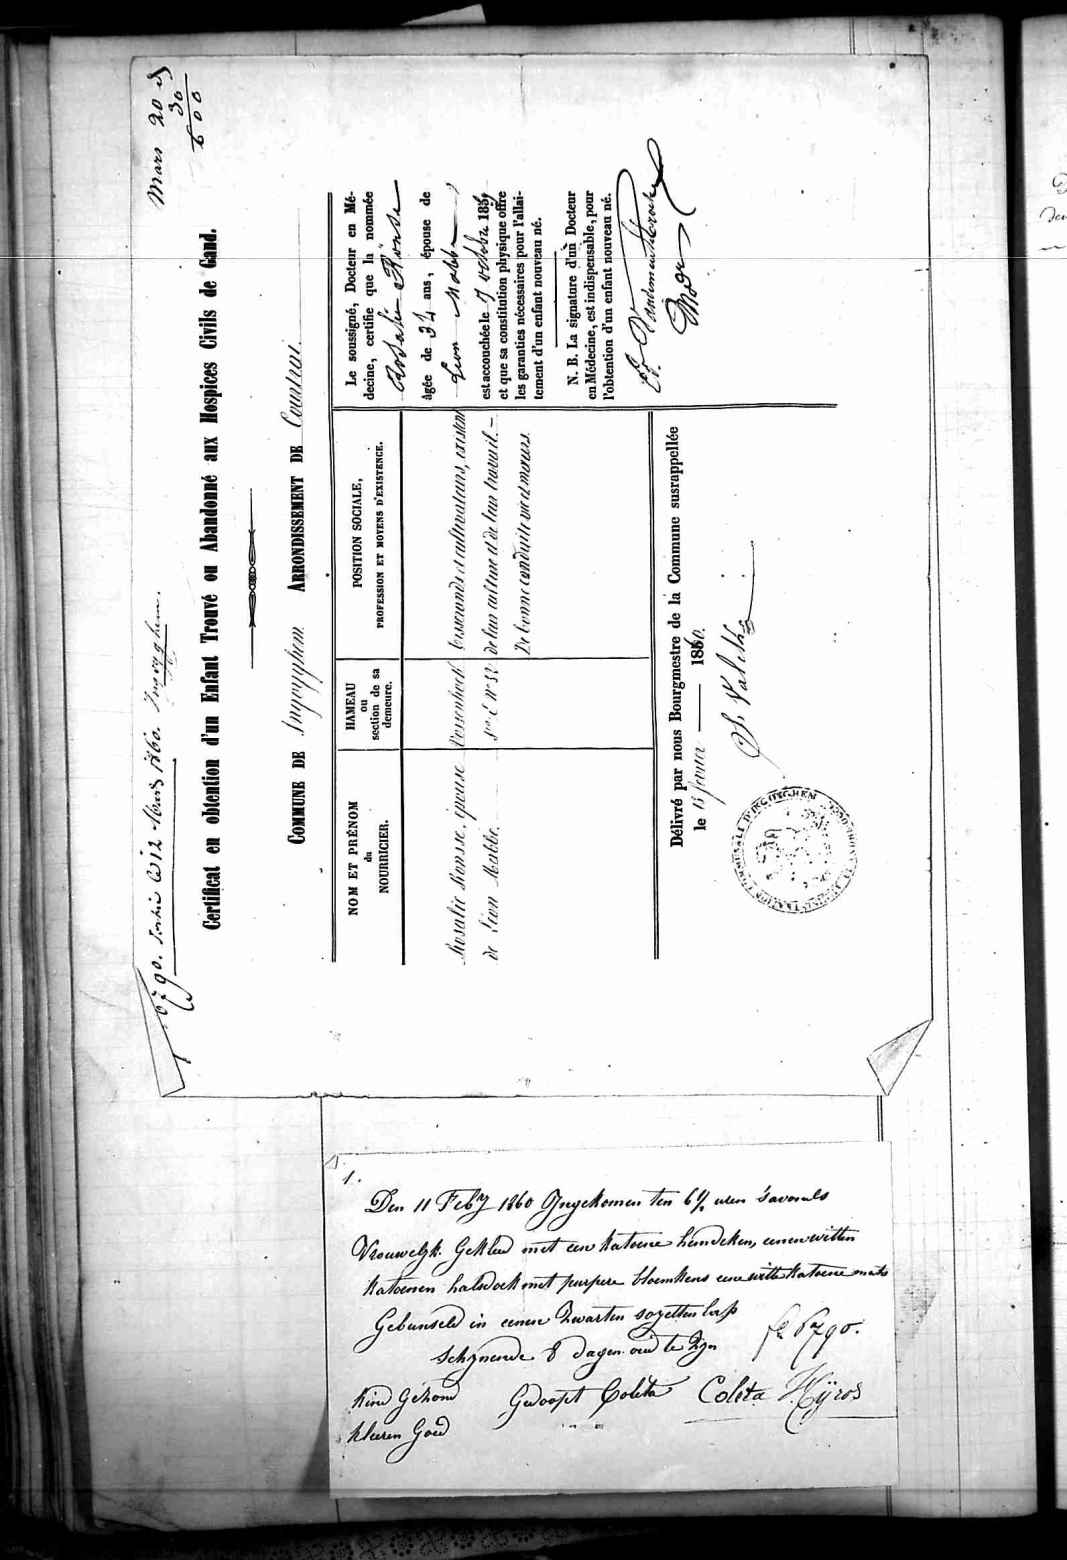 Mars 20 d
30
600
6790. Sortie le 12 Mars 1860. Ingoyghem.
Certificat en obtention d'un Enfant Trouvé ou Abandonné aux Hospices Civils de Gand.
COMMUNE DE Ingoyghem ARRONDISSEMENT DE Courtrai.
NOM ET PRÉNOM
du
NOURRICIER.
HAMEAU
ou
section de sa
demeure.
POSITION SOCIALE,
PROFESSION ET MOYENS D'EXISTENCE.
Rosalie Ronsse, épouse
de Léon Mabbe.
Vossenhoek
Son C No 52
tisserands et cultivateurs, existant
de leur culture et de leur travail. –
De bonne conduite vie et mœurs.
Le soussigné, Docteur en Mé-
decine, certifie que la nommée
Rosalie Ronsse
âgée de 34 ans, épouse de
Léon Mabbe
est accouchée le 7 octobre 1859
et que sa constitution physique offre
les garanties nécessaires pour l'allai-
tement d'un enfant nouveau né.
N. B. La signature d'un Docteur
en Médecine, est indispensable, pour
l'obtention d'un enfant nouveau né.
Délivré par nous Bourgmestre de la Commune susrappellée
le 15 fevrier 1860.
1.
Den 11 Feby 1860 Ingekomen ten 6½ uren s'avonds
Vrouwelyk. Gekleed met een katoene hemdeken, eenen witten
katoenen halsdoek met purpere bloemkens eene witte katoene muts
Gebunseld in eenen Zwarten sayetten lap
schynende 8 dagen oud te Zyn
fo 6790.
Kind Gezond Gedoopt Coleta Coleta Hÿros
kleeren Goed